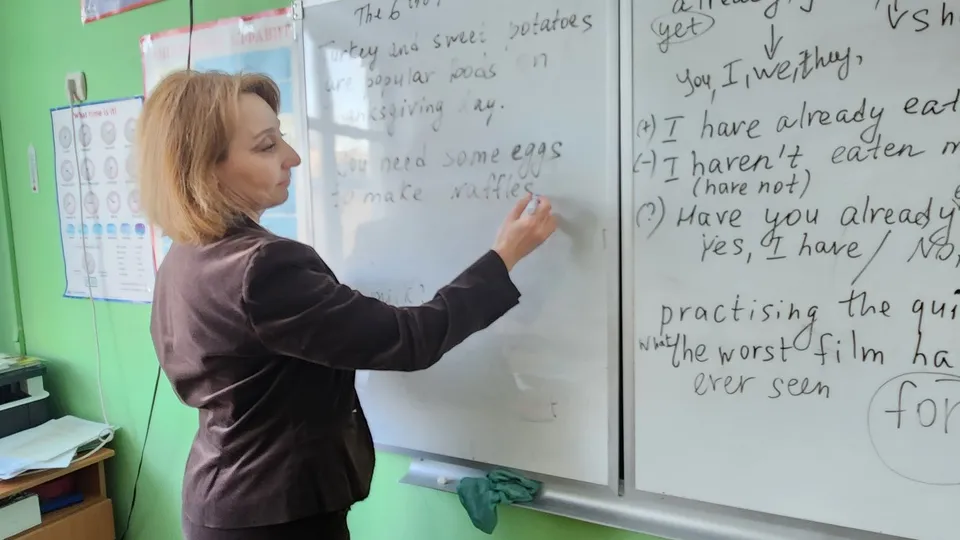 The 6th
Turkey and sweet potatoes
are popular foods on
Thanksgiving day.
You need some eggs
to make waffles
already,
yet
you, I, we, they,
(+) I have already eat
(-) I haven't eaten
(have not)
(?) Have you already
Yes, I have / No,
practising the gui
What the worst film ha
ever seen
for
What time is it?